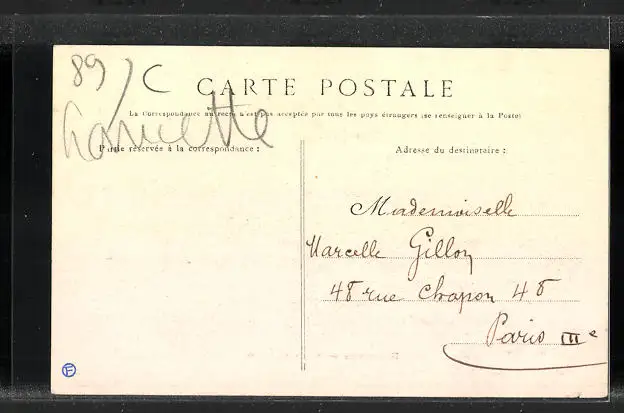 89 / C
CARTE POSTALE
La Correspondance au recto n'est pas acceptée par tous les pays étrangers (se renseigner à la Poste)
Partie réservée à la correspondance :
Adresse du destinataire :
Mademoiselle
Marcelle Gillon
48 rue Chapon 48
Paris IIIe
F